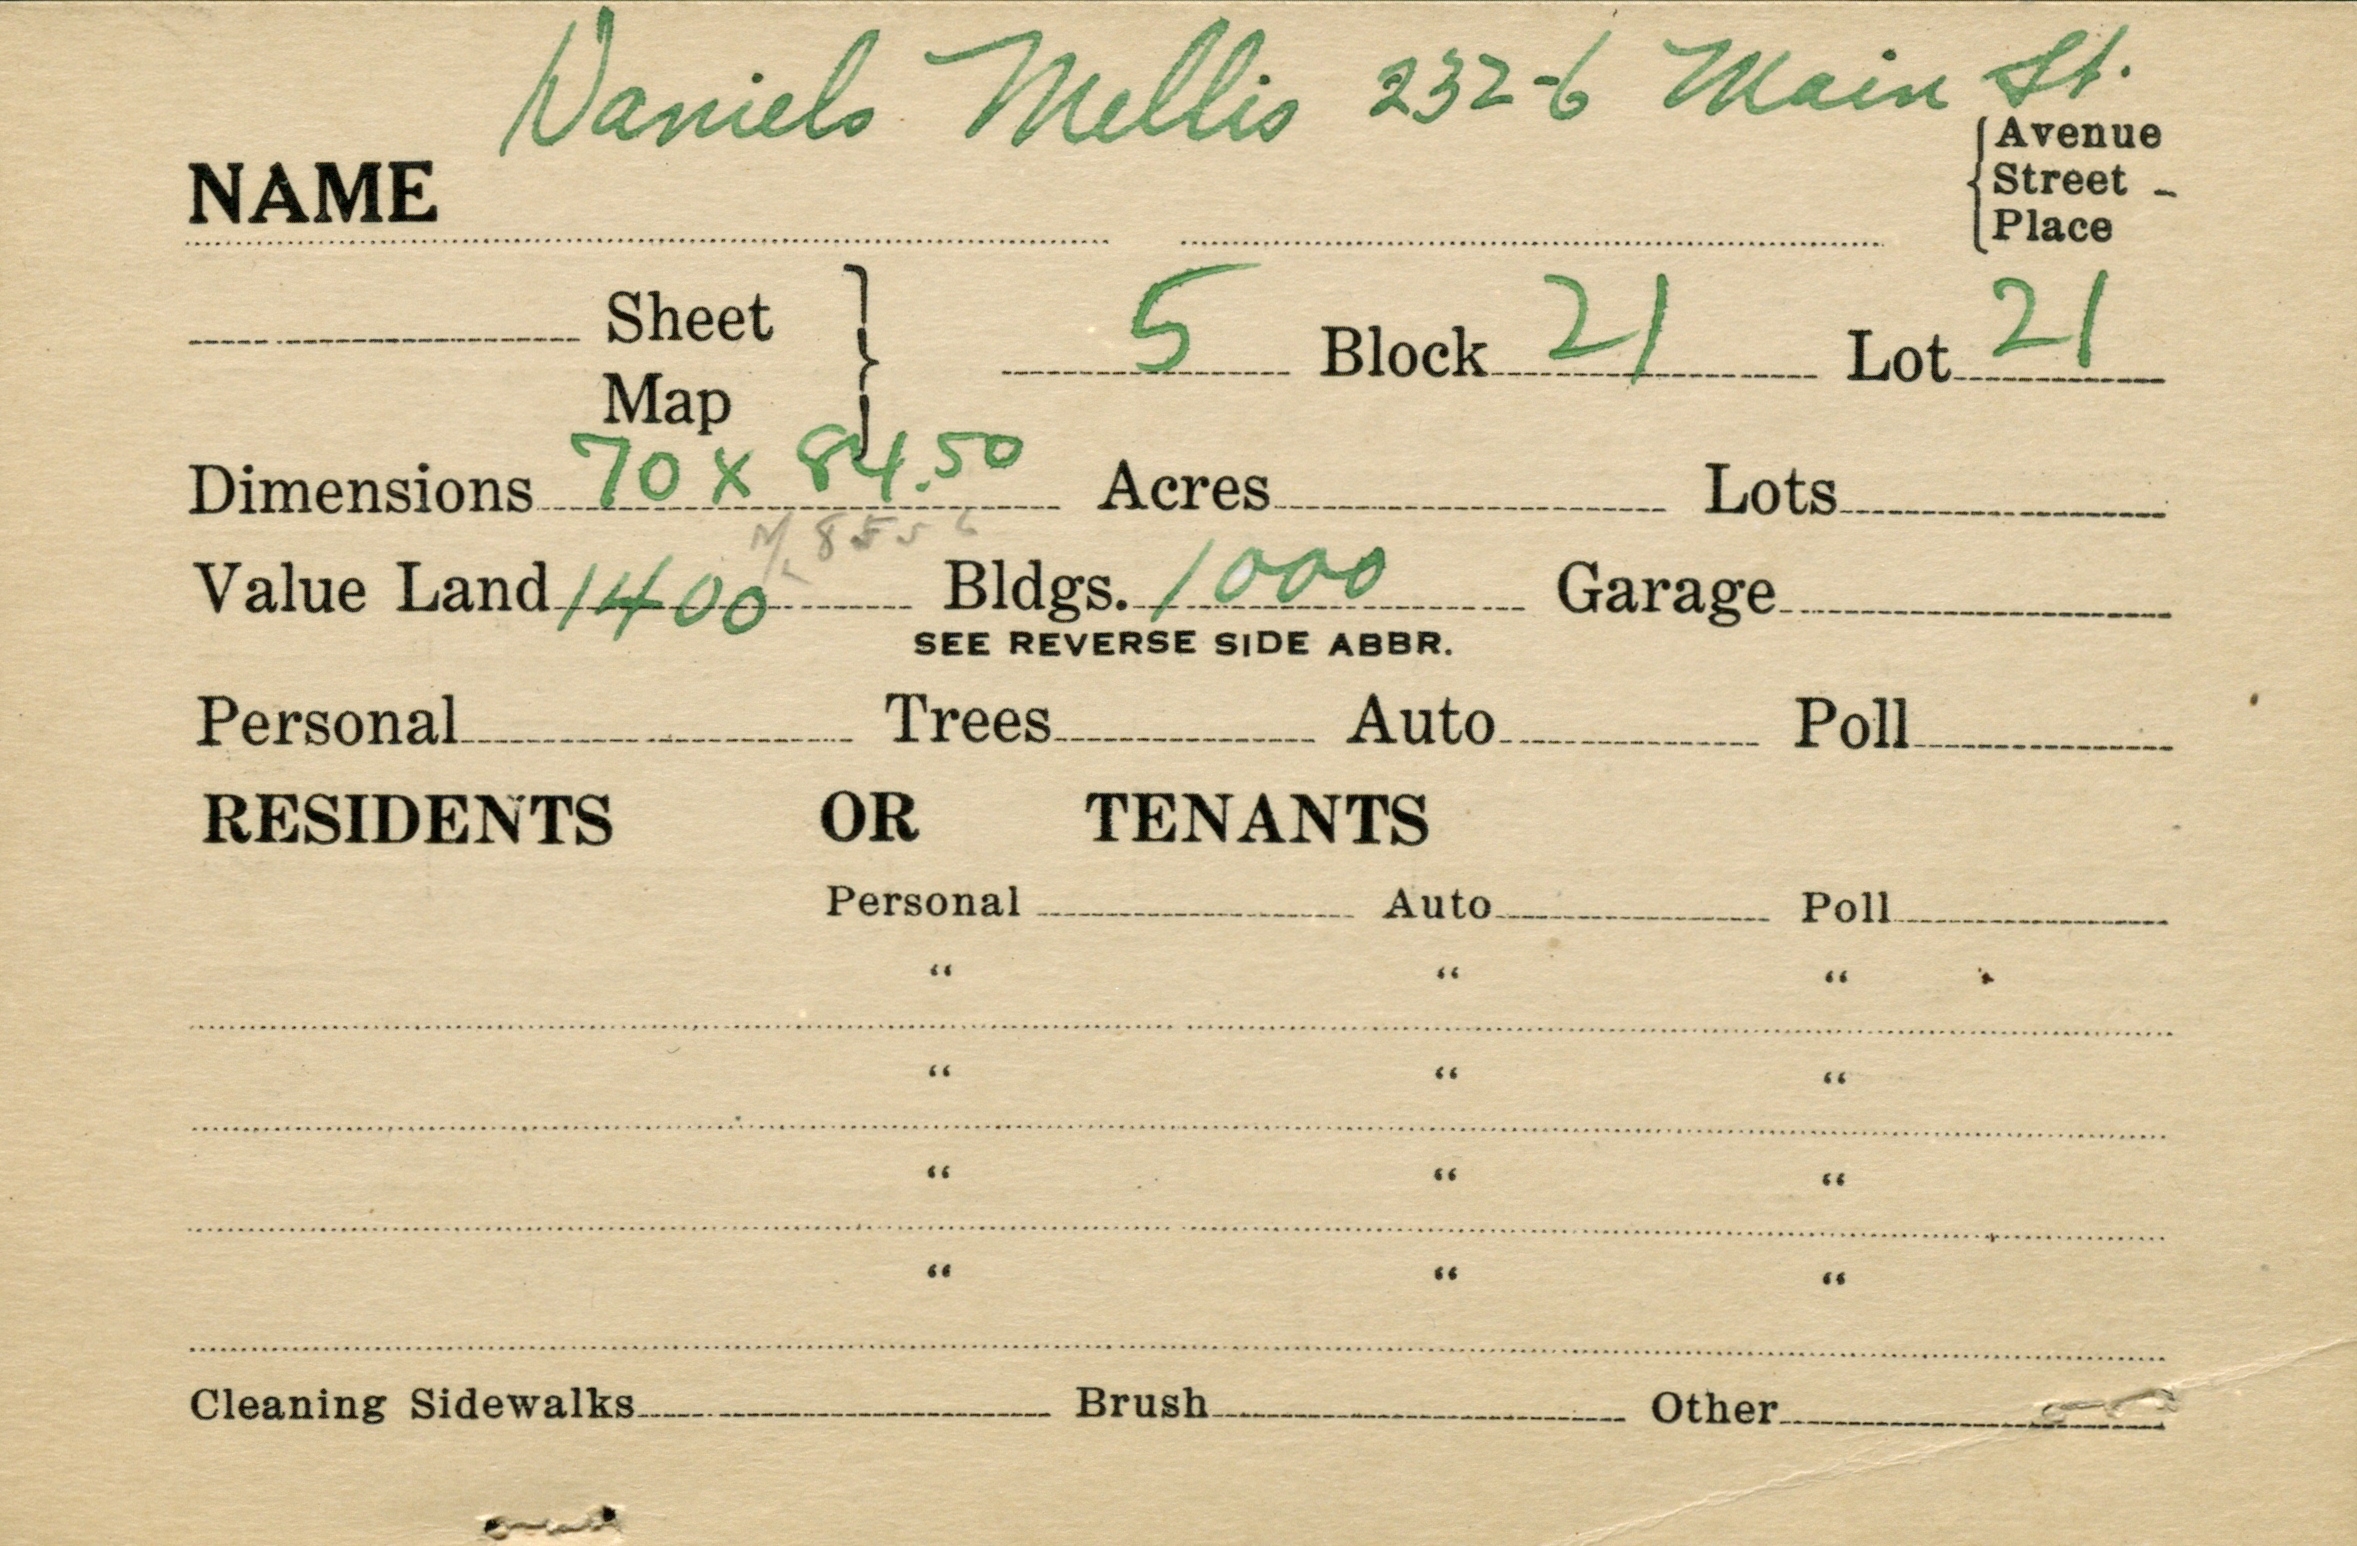 Daniels Mellis 232-6 Main St.
NAME { Avenue Street - Place
Sheet Map } 5 Block 21 Lot 21
Dimensions 70 x 84.50 Acres Lots
Value Land 1400 Bldgs. 1000 Garage
SEE REVERSE SIDE ABBR.
Personal Trees Auto Poll
RESIDENTS OR TENANTS
Personal Auto Poll
" " "
" " "
" " "
" " "
Cleaning Sidewalks Brush Other